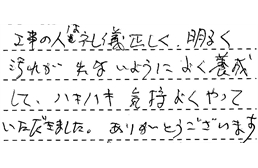 工事の人は礼し儀正しく、明るく
汚れが失ないようによく養成
して、ハキハキ気持よくやって
いただきました。ありがとうございます